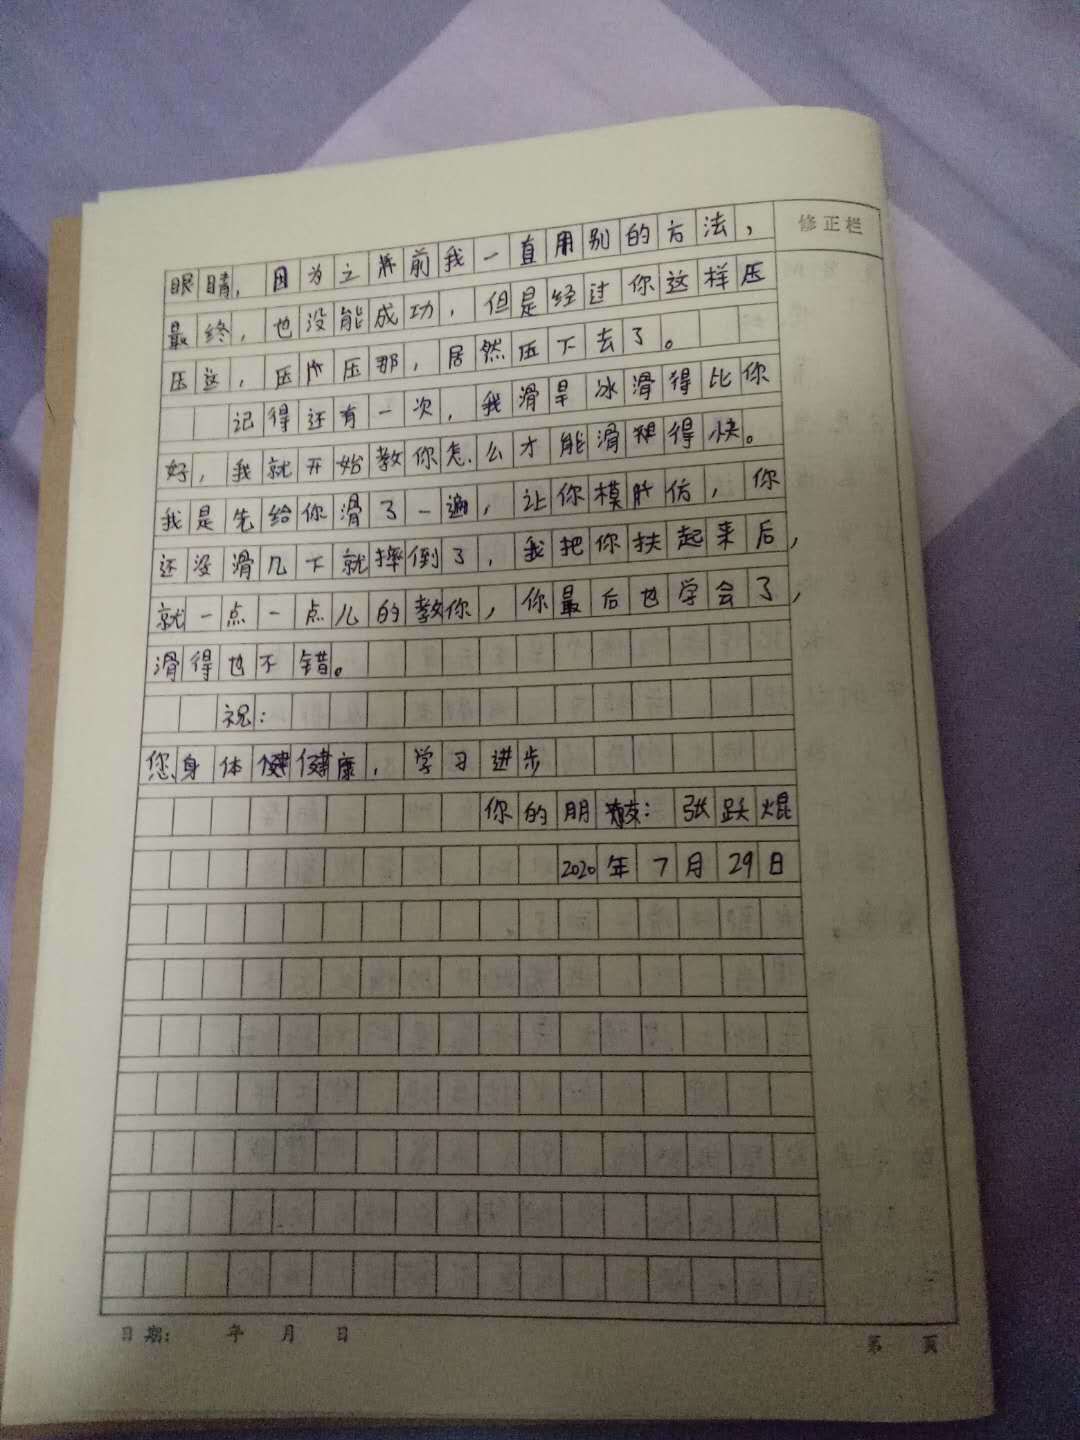 修正栏
眼睛，因为之前我一直用别的方法，
最终，也没能成功，但是经过你这样压
压这，压压那，居然压下去了。
记得还有一次，我滑旱冰滑得比你
好，我就开始教你怎么才能滑得快。
我是先给你滑了一遍，让你模仿，你
还没滑几下就摔倒了，我把你扶起来后，
就一点一点儿的教你，你最后也学会了，
滑得也不错。
祝：
您身体健康，学习进步
你的朋友：张跃焜
2020年7月29日
日期： 年 月 日
第 页